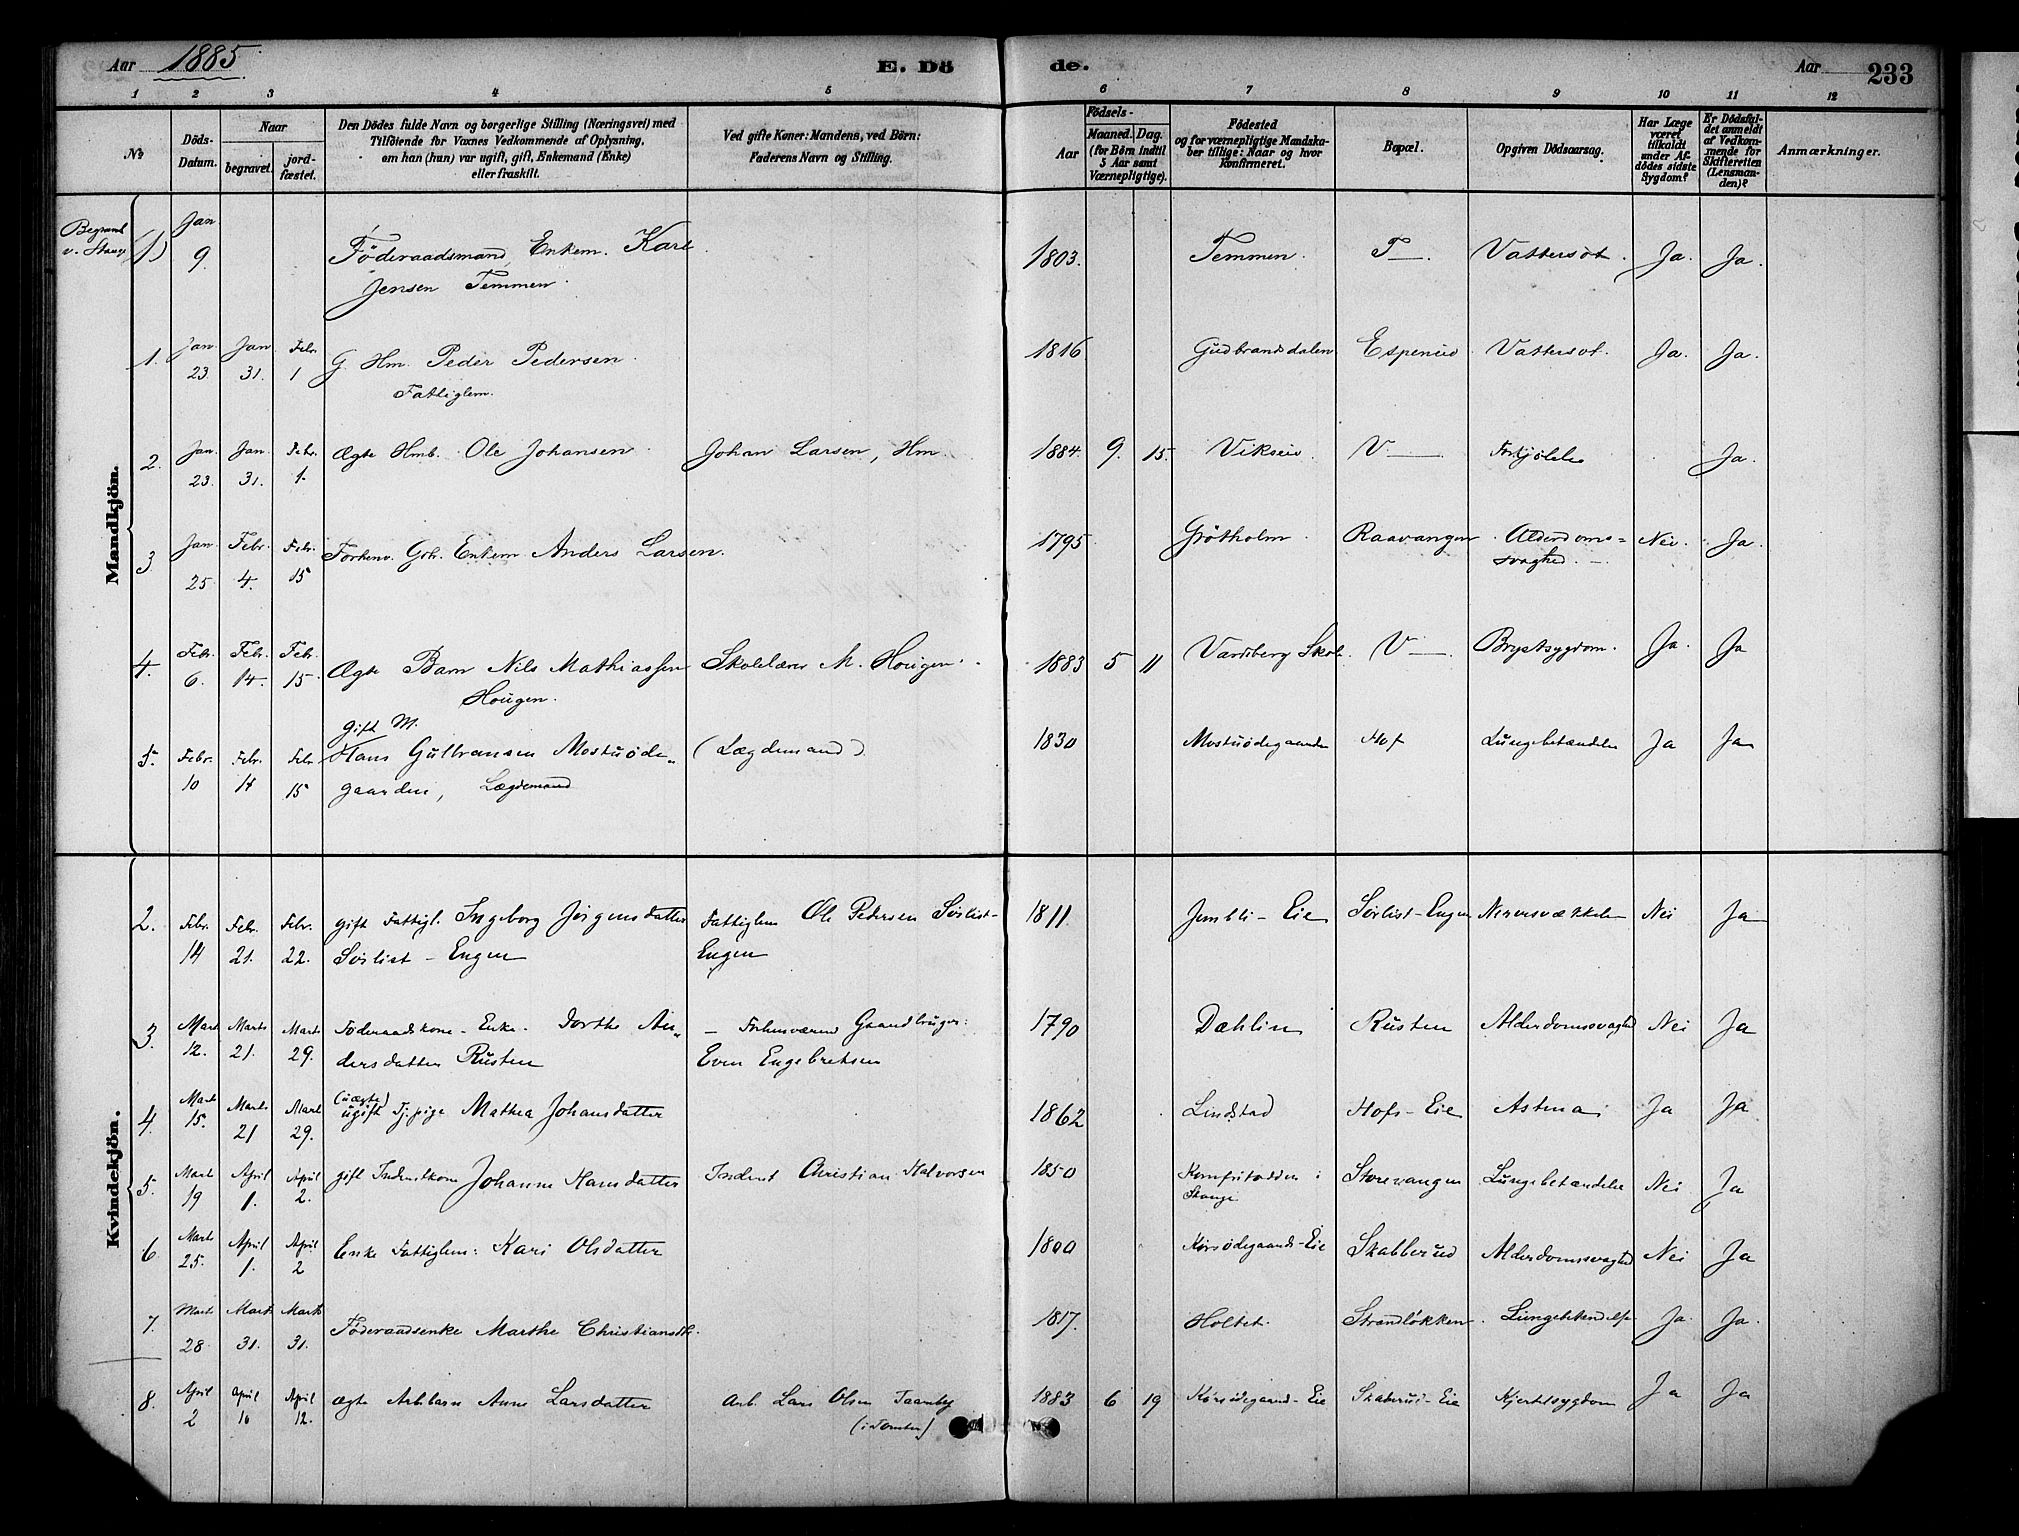 Aar 1885.
E. Dö
de.
Aar 233
1 2 3 4 5 6 7 8 9 10 11 12
No
Döds-Datum.
Naar
begravet.
jord-fæstet.
Den Dödes fulde Navn og borgerlige Stilling (Næringsvei) med
Tilföiende for Voxnes Vedkommende af Oplysning,
om han (hun) var ugift, gift, Enkemand (Enke)
eller fraskilt.
Ved gifte Koner: Mandens, ved Börn:
Faderens Navn og Stilling.
Födsels-
Aar
Maaned. Dag.
(for Börn indtil
5 Aar samt
Værnepligtige).
Födested
og for værnepligtige Mandska-
ber tillige: Naar og hvor
konfirmeret.
Bopæl.
Opgiven Dödsaarsag.
Har Læge
været
tilkaldt
under Af-
dödes sidste
Sygdom?
Er Dödsfal-
det anmeldt
af Vedkom-
mende for
Skifteretten
(Lensman-
den)?
Anmærkninger.
Mandkjön.
v. Stange (1) Jan 9. Föderaadsmand, Enkem. Kare 1803. Temmen. T— Vattersot. Ja. Ja.
Jensen Temmen.
1. Jan. 23. Jan 31. Febr. 1 G. Hm. Peder Pedersen. 1816 Gudbrandsdalen Espenud Vattersot. Ja. Ja.
Fattiglem.
2. Jan. 23. Jan. 31. Febr. 1. Ægte Hmb. Ole Johansen. Johan Larsen, Hm. 1884. 9. 15. Vikseie V.— Forkjölelse Ja.
3 Jan. 25 Febr. 4. Febr. 15 Forhenv. Gbr. Enkem Anders Larsen. 1795 Grötholm. Raavangen Alderdoms=
svaghed. Nei. Ja.
4. Febr. 6. Febr. 14. Febr. 15 Ægte Barn Nils Mathiassen Skolelærer M. Hougen. 1883 5 11 Vardberg Skole V— Brystsygdom. Ja. Ja
Hougen.
gift M.
5. Febr. 10 Febr. 14 Febr. 15 Hans Gulbransen Mostuöde- (Lægdemand). 1830 Mostuödegaarden Hof Lungebetændelse Ja Ja
gaarden, Lægdemand
Kvindekjön.
2. Febr. 14 Febr. 21. Febr. 22. gift Fattigl. Ingeborg Jörgensdatter Fattiglem Ole Pedersen Sörlist- 1811. Jembli-Eie Sörlist-Engen Nervesvækkelse Nei Ja
Sörlist-Engen Engen
3. Mart 12. Marts 21. Marts 29. Föderaadskone-Enke. Dorthe An- — Forhenværend Gaardbruger: 1790 Dæhlin Rusten Alderdomssvaghed Nei Ja
dersdatter Rusten Even Engebretsen
(uægte)
4. Mart 15. Marts 21 Mart 29. ugift Tj.pige Mathea Johansdatter 1862 Lindstad Hofs-Eie Astma Ja Ja
5. Marts 19 April 1. April 2. gift Inderstkone Johanne Hansdatter Inderst Christian Halvorsen 1850 i Storevangen Lungebetændelse Nei Ja
Stange
6. Marts 25. April 1. April 2 Enke Fattiglem: Kari Olsdatter 1800 Korsödegaards-Eie Skabberud Alderdomssvaghed Nei Ja
7. Marts 28 Marts 31. Marts 31. Föderaadsenke Marthe Christiansdtr. 1817. Holtet. Strandlökken. Lungebetændelse Ja. Ja.
8. April 2 April 10 April 12. ægte Arb.barn Anne Larsdatter Arb. Lars Olsen Taarnby 1883 6 19 Korsödegaards-Eie Skaberud-Eie Kjertelsygdom Ja Ja